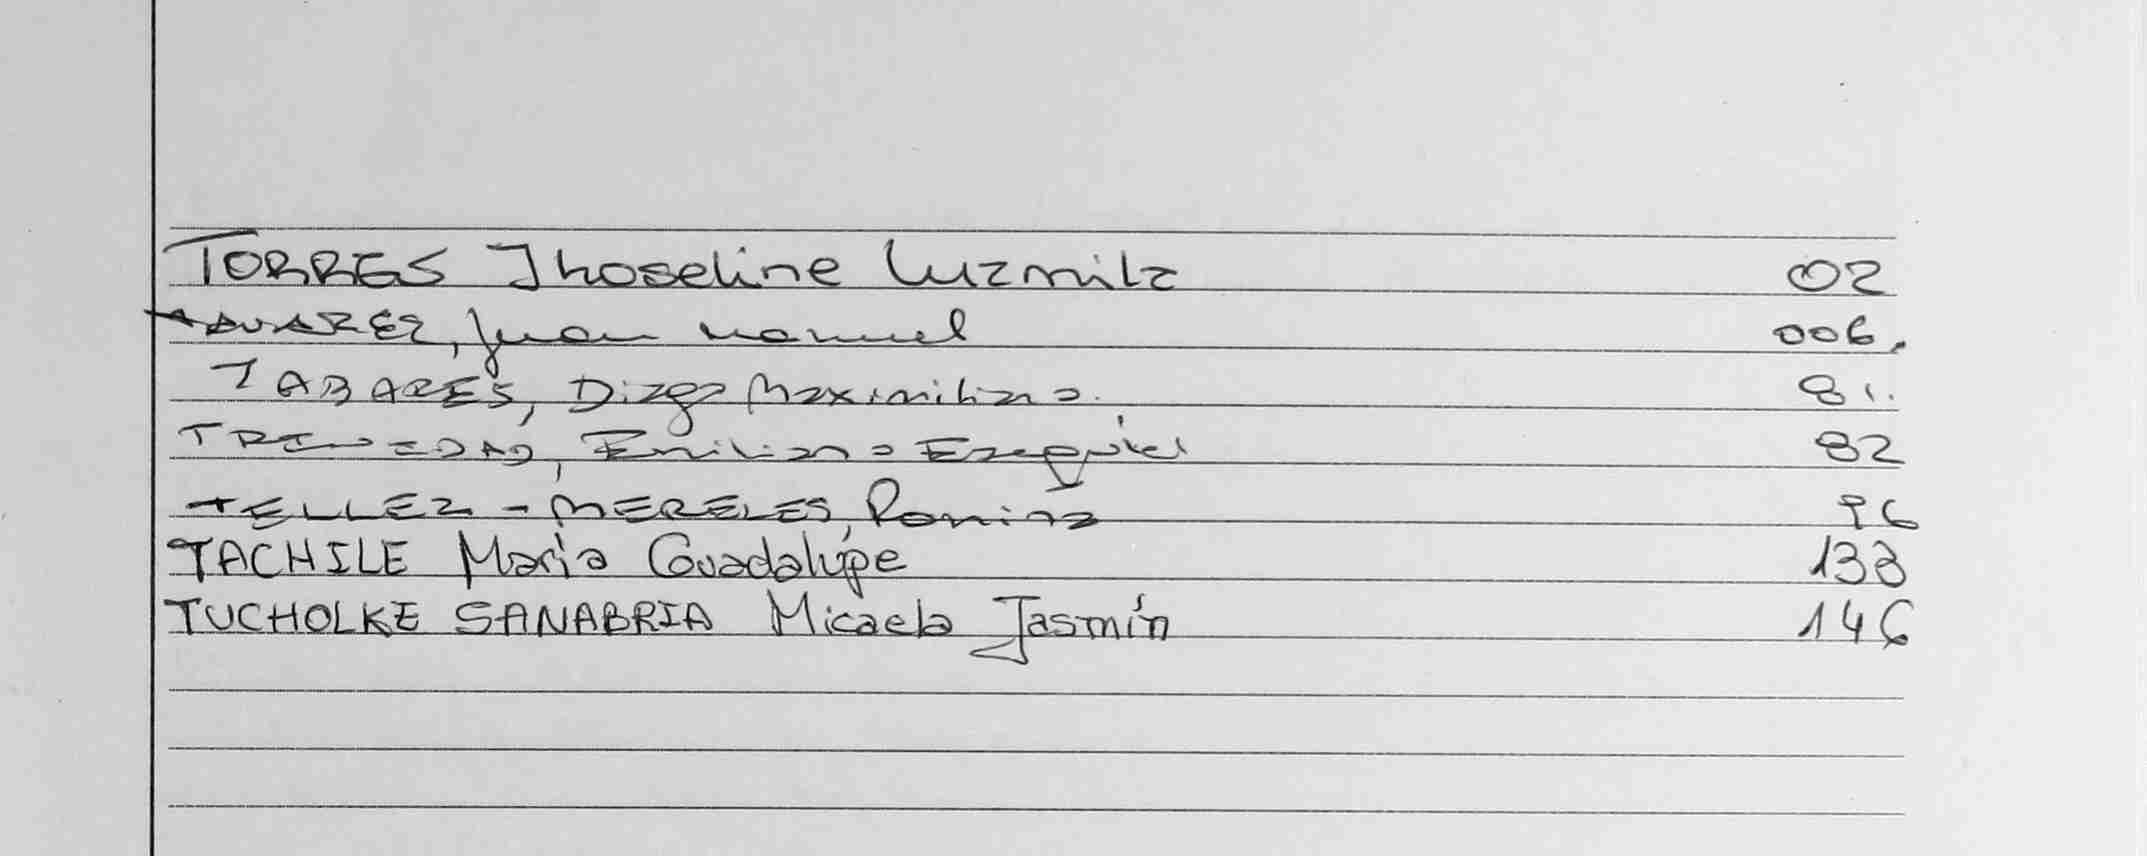 TORRES Jhoseline Luzmila 02
Juan Manuel 006.
TABARES, Diego Maximiliano. 81.
TRINIDAD, Emiliano Ezequiel 82
TELLEZ - MERELES, Romina 96
TACHILE María Guadalupe 138
TUCHOLKE SANABRIA Micaela Jasmín 146